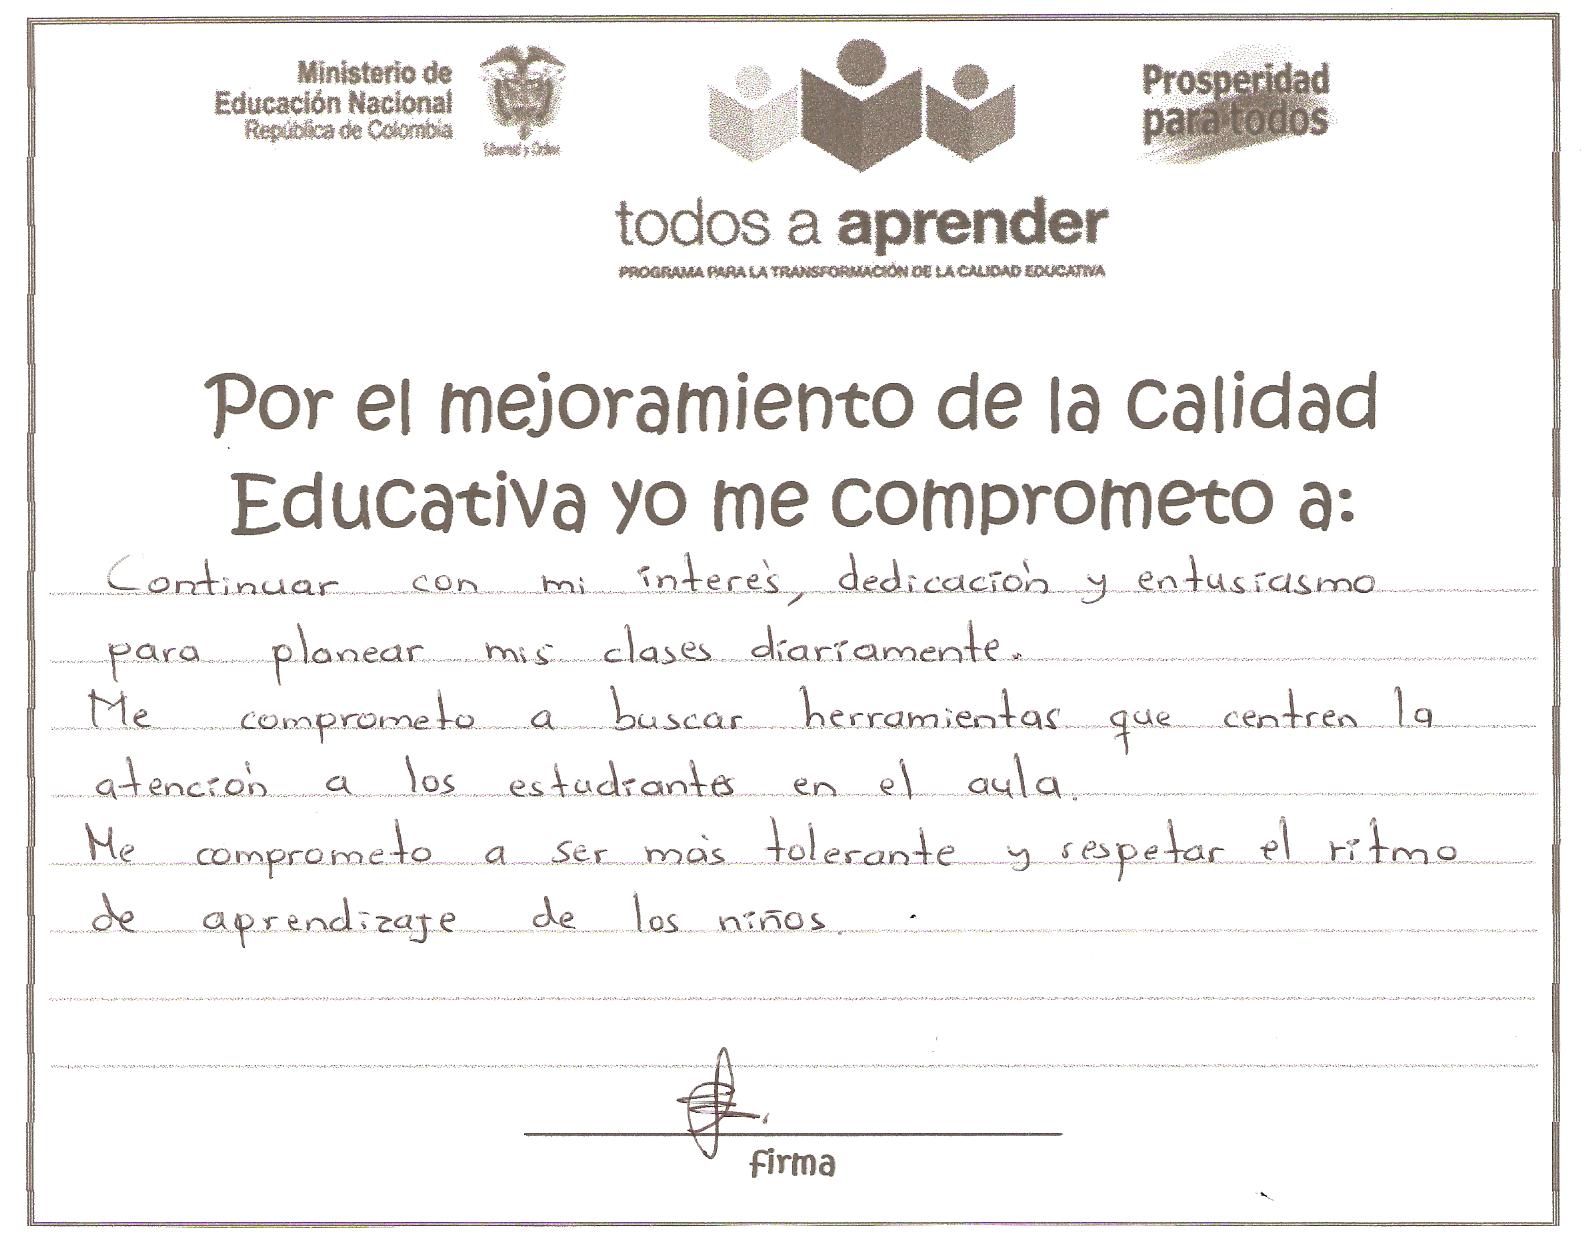 Ministerio de
Educación Nacional
República de Colombia
Libertad y Orden
Prosperidad
para todos
todos a aprender
PROGRAMA PARA LA TRANSFORMACIÓN DE LA CALIDAD EDUCATIVA
Por el mejoramiento de la Calidad
Educativa yo me comprometo a:
Continuar con mi interés, dedicación y entusiasmo
para planear mis clases diariamente.
Me comprometo a buscar herramientas que centren la
atención a los estudiantes en el aula.
Me comprometo a ser más tolerante y respetar el ritmo
de aprendizaje de los niños.
firma